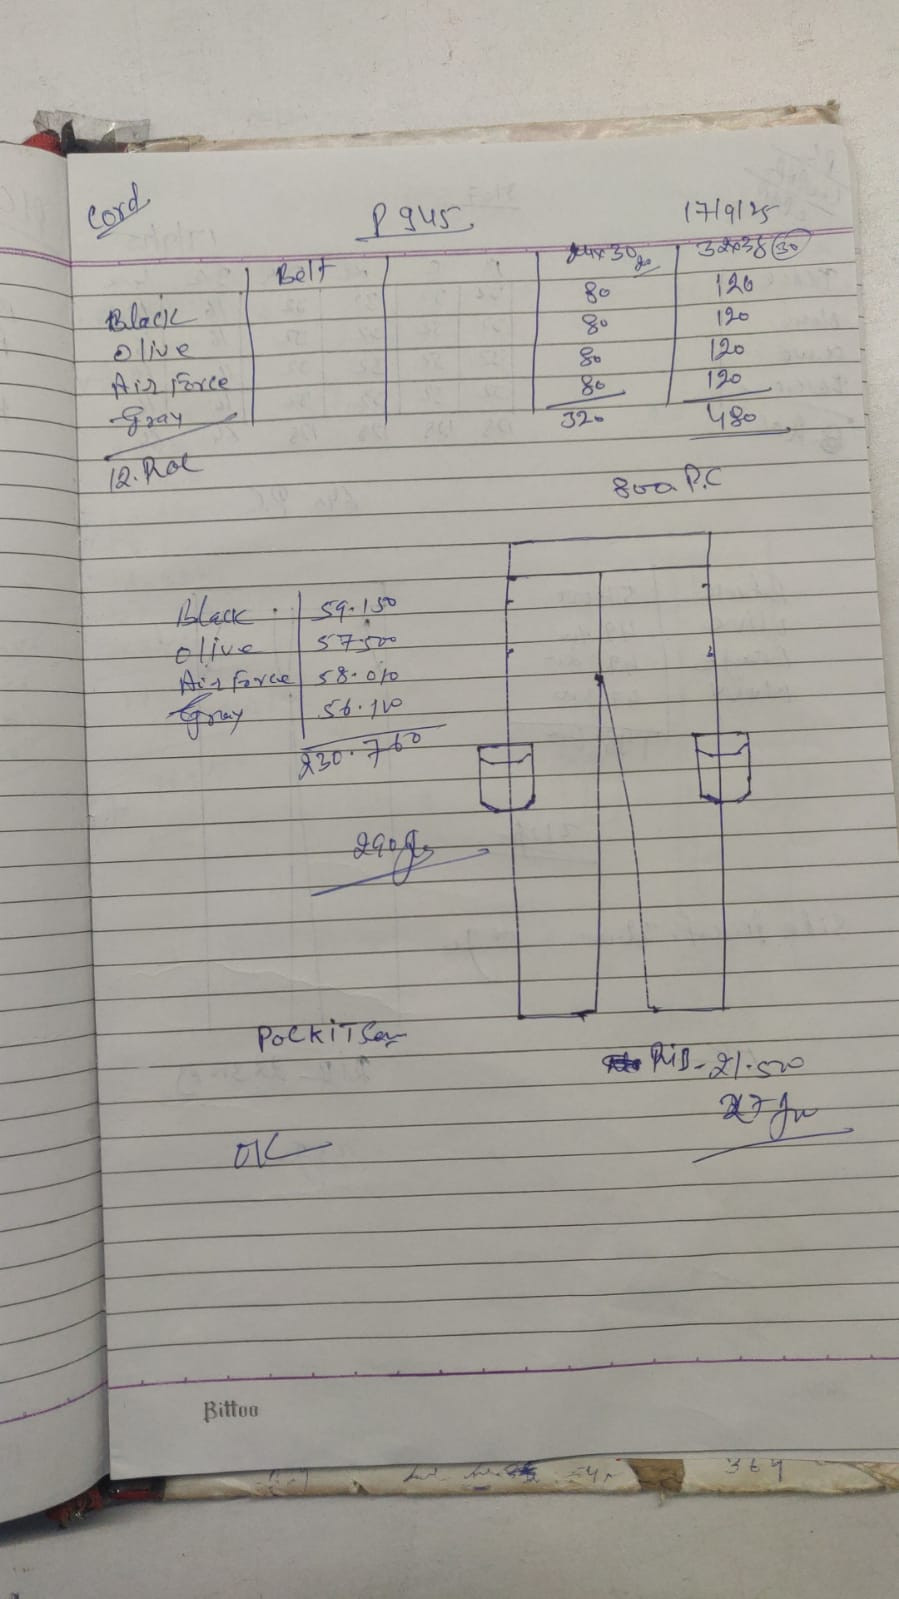 Cord
P 945
17/9/25
Belt 24x30 32x38 30
Black 80 120
Olive 80 120
Air Force 80 120
Gray 80 120
320 480
12. Rol
800 P.C
Black 59.150
Olive 57.500
Air Force 58.010
Gray 56.100
230.760
290
POCKIT
RIB - 21.500
27
OK
Bittoo
364